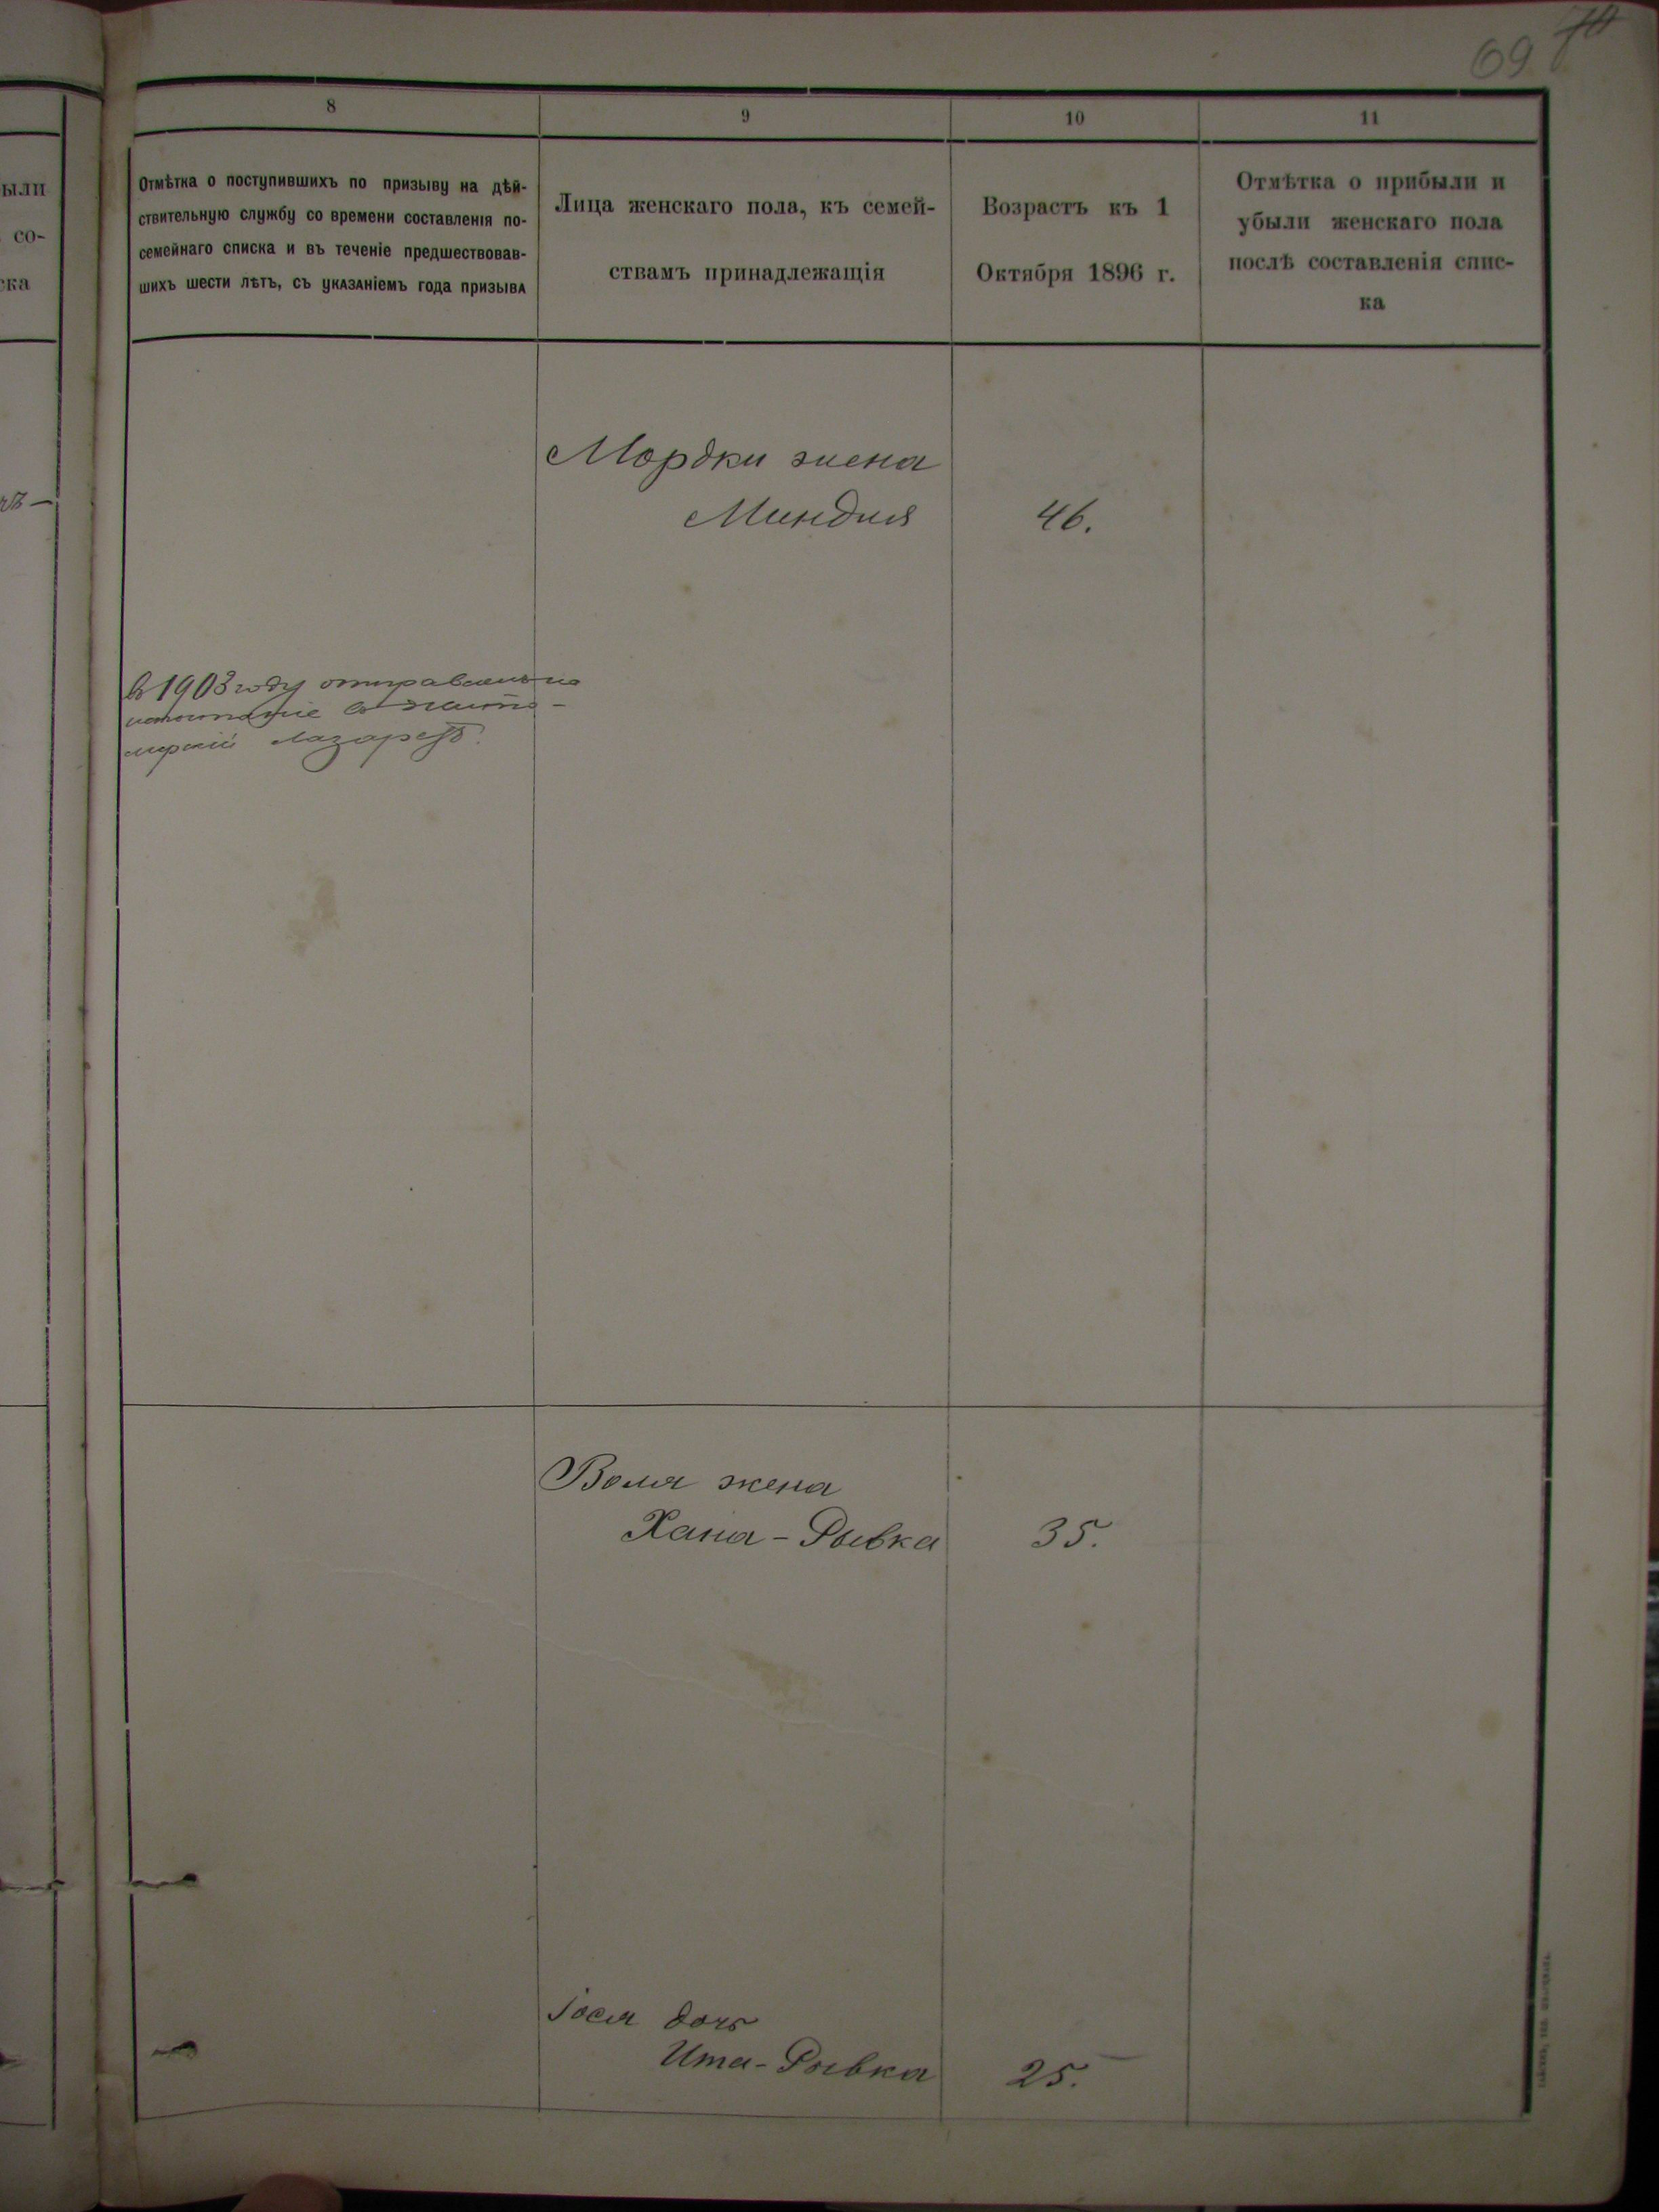 69 70
8
9
10
11
Отмѣтка о поступившихъ по призыву на дѣй-
ствительную службу со времени составленія по-
семейнаго списка и въ теченіе предшествовав-
шихъ шести лѣтъ, съ указаніемъ года призыва
Лица женскаго пола, къ семей-
ствамъ принадлежащія
Возрастъ къ 1
Октября 1896 г.
Отмѣтка о прибыли и
убыли женскаго пола
послѣ составленія спис-
ка
ыли
со-
ска
Мордки жена
Миндля 46.
в 1903 году отправленъ на
испытаніе в Жито-
мирскій Лазаретъ.
Воля жена
Хана-Рывка 35.
Іося дочь
Ита-Рывка 25.